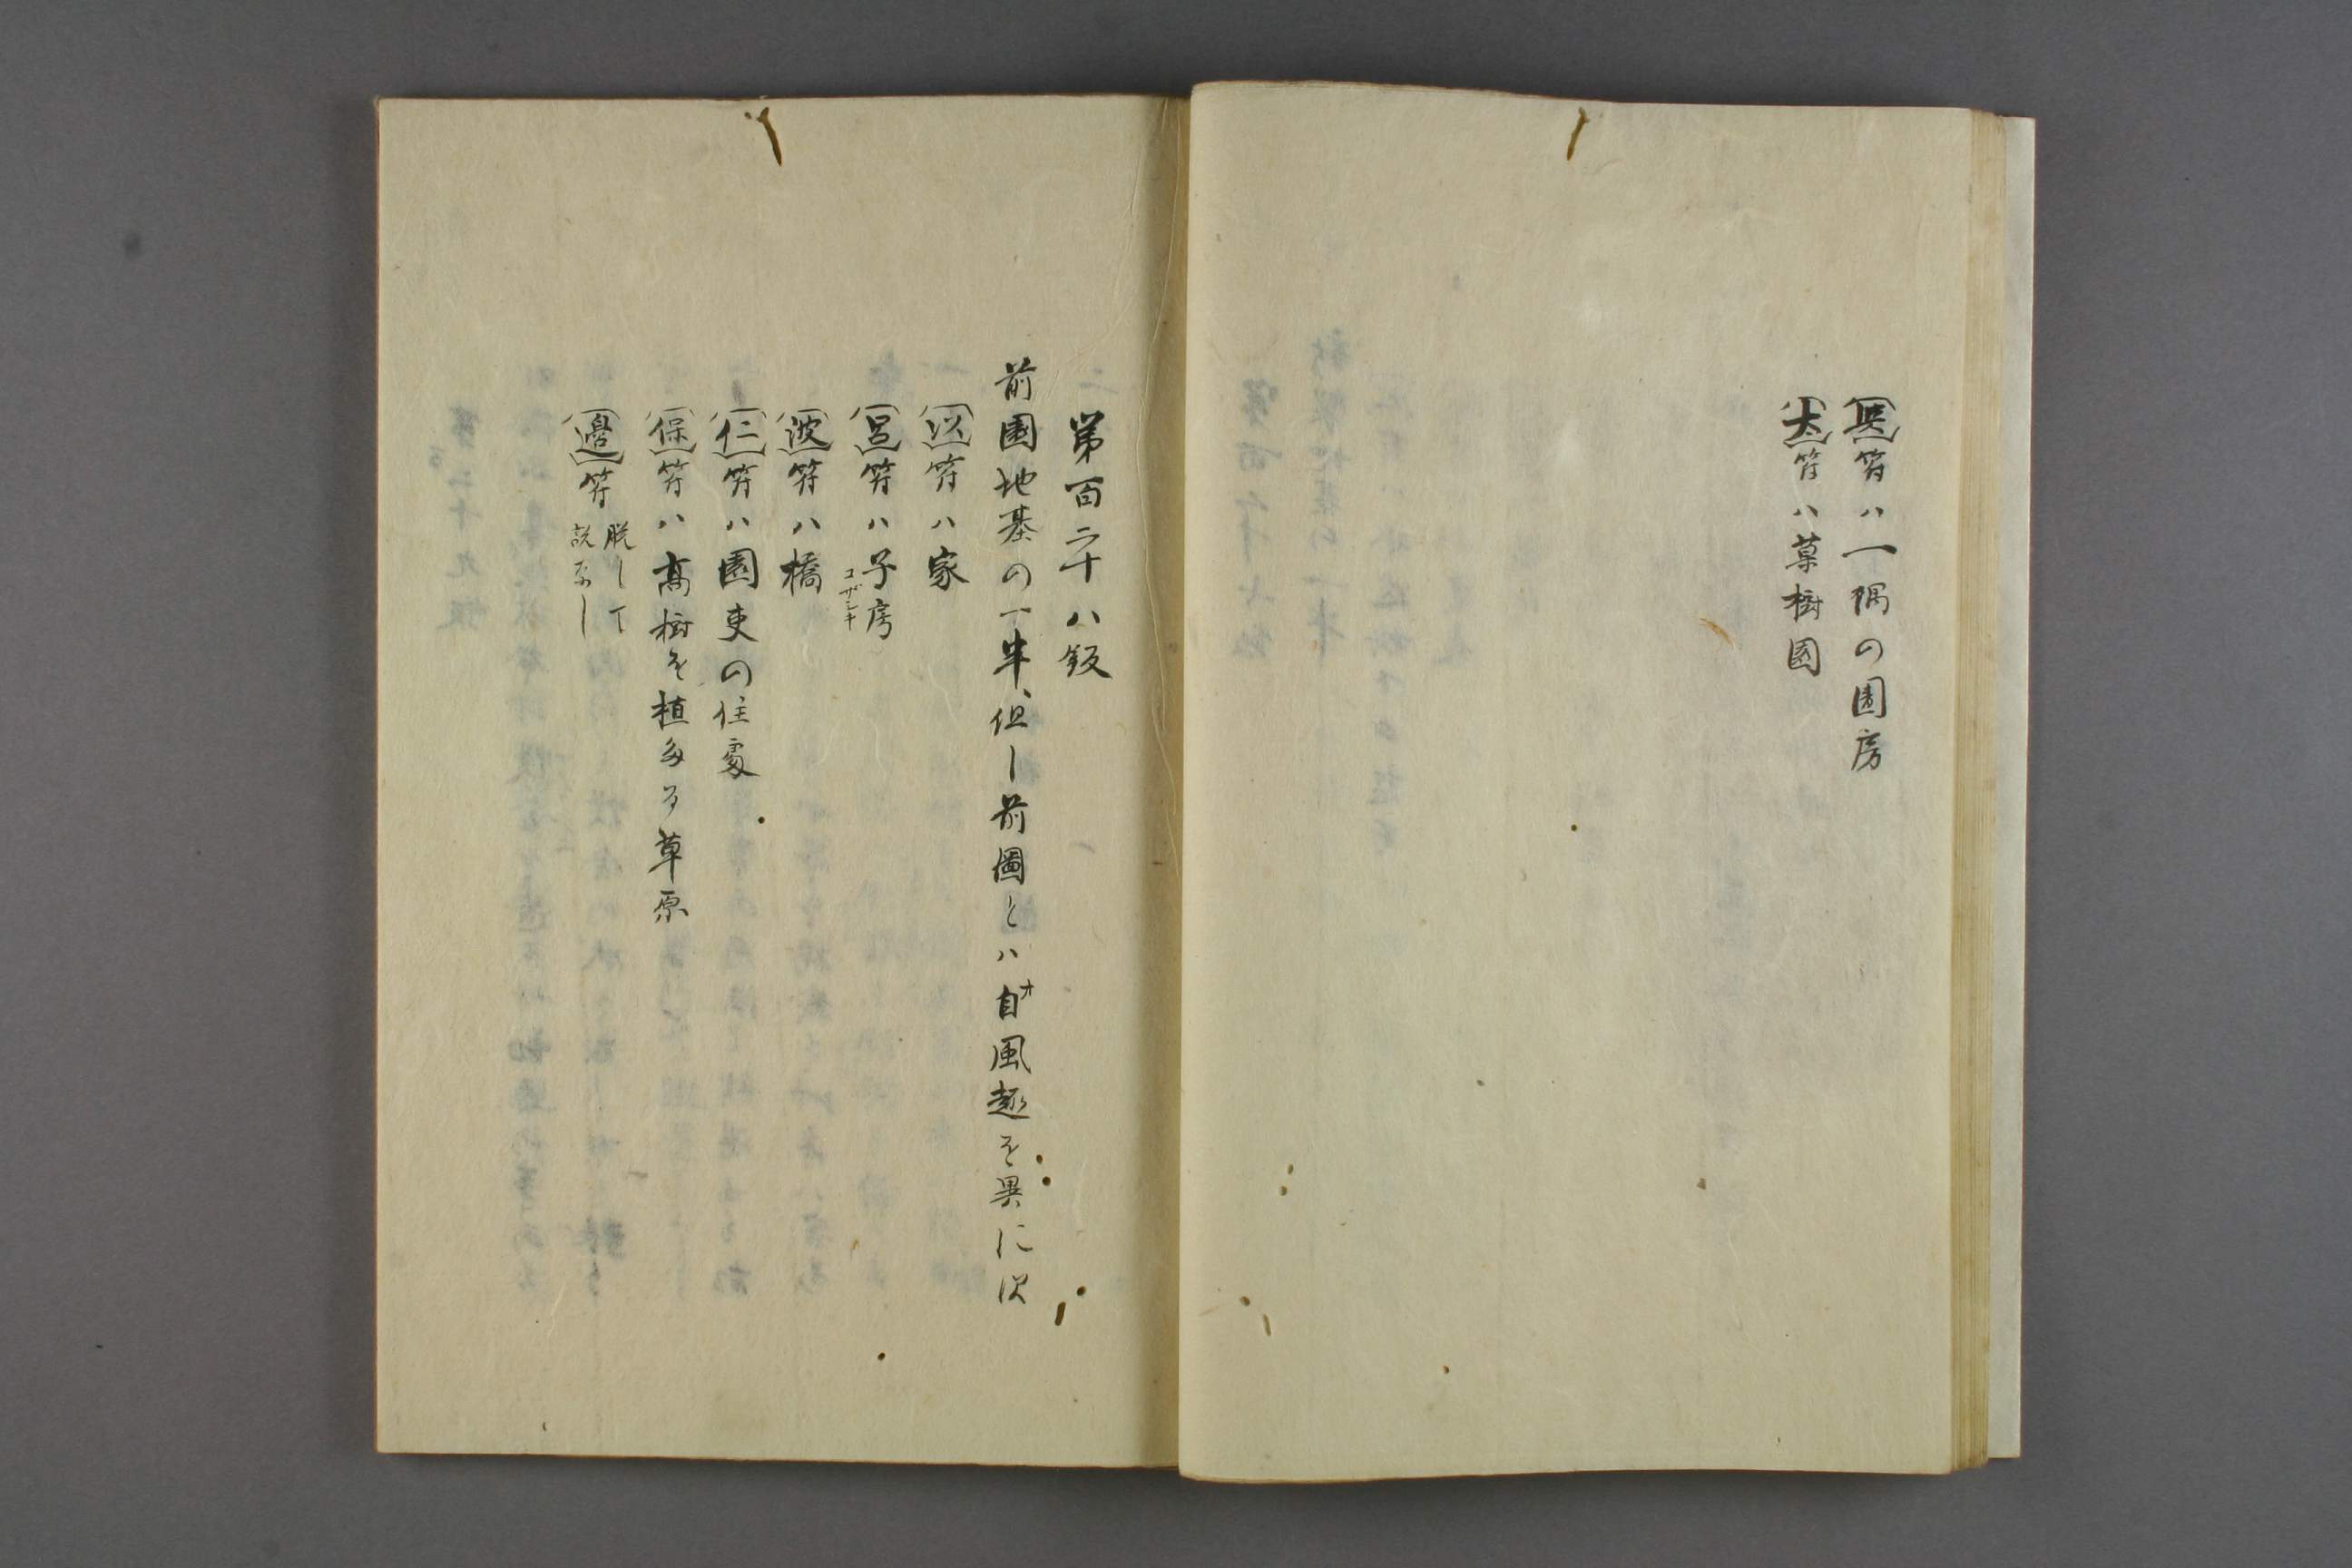 (兵)符ハ一隅の園房
(太)符ハ草樹園
第百二十八鈑
前園地基の一半、但し前圖とハ自オ風趣を異に次
(以)符ハ家
(呂)符ハ子房コザシキ
(波)符ハ橋
(仁)符ハ園吏の住處
(保)符ハ高樹を植多る草原
(邉)符脱して説なし